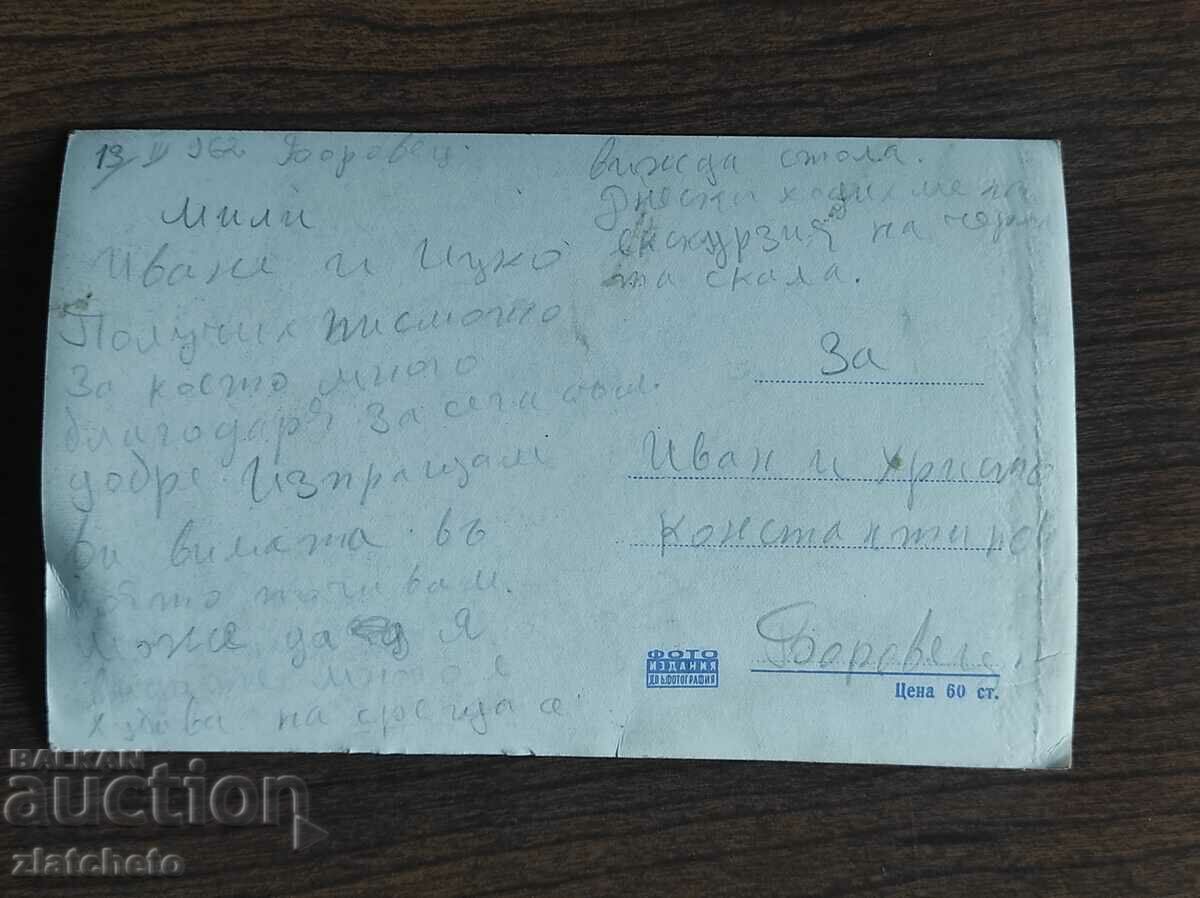 13 V 962 Боровец.
Мили
Иване и Ицко
Получих писмото
За което много
благодаря За сега съм
добре. Изпращам
ви вилата въ
която почивам.
Може да я
много е
хубава на среща се
вижда стола.
Днеска ходихме на
екскурзия на
та скала.
За
Иван и Христо
Константинов
Боровец
ФОТО
ИЗДАНИЯ
ДП Б.ФОТОГРАФИЯ
Цена 60 ст.
BALKAN
auction
zlatcheto